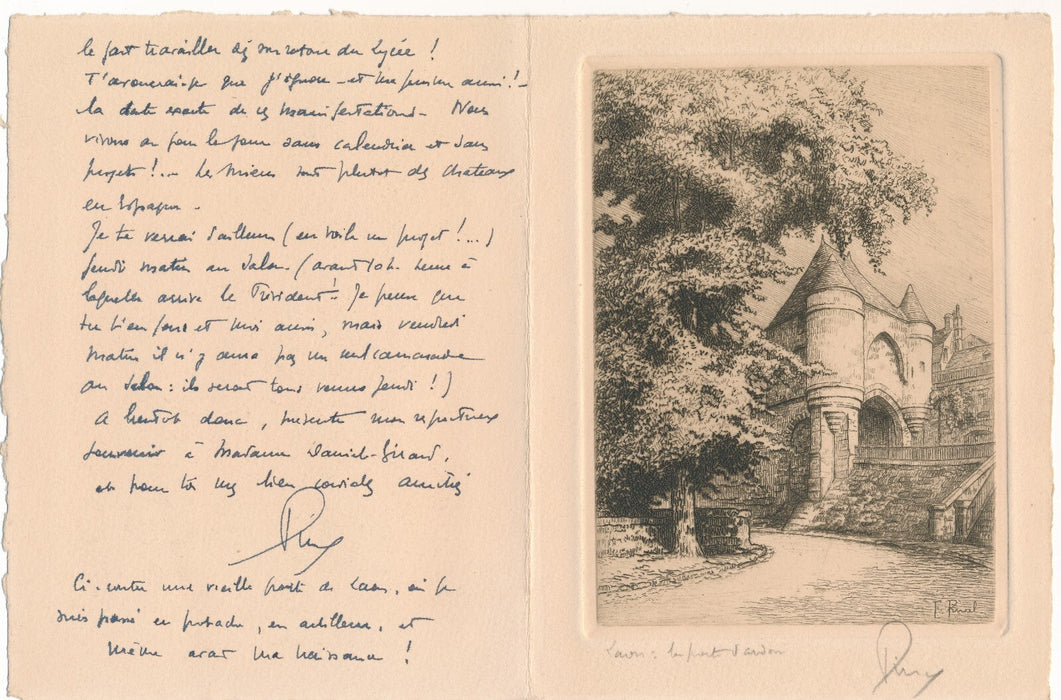 le fait travailler dès son retour du Lycée !
T'avouerai-je que j'ignore - et ma femme aussi ! -
la date exacte de ces manifestations - Nous
vivons au jour le jour sans calendrier et sans
projets !... Les miens sont plutôt des chateaux
en Espagne -
Je te verrai d'ailleurs (en voilà un projet !...)
Jeudi matin au Salon - (avant 10h. heure à
laquelle arrive le Président ! Je pense que
tu bien et moi aussi, mais vendredi
matin il n'y aura pas un seul camarade
au Salon : ils seront tous venus Jeudi !)
A bientôt donc, présente mon respectueux
souvenir à Madame Daniel-Girard,
et pour toi mes bien cordiales amitiés
Ci-contre une vieille porte de Laon, où je
suis passé en potache, en artilleur, et
même avant ma naissance !
Laon : la porte d'ardon